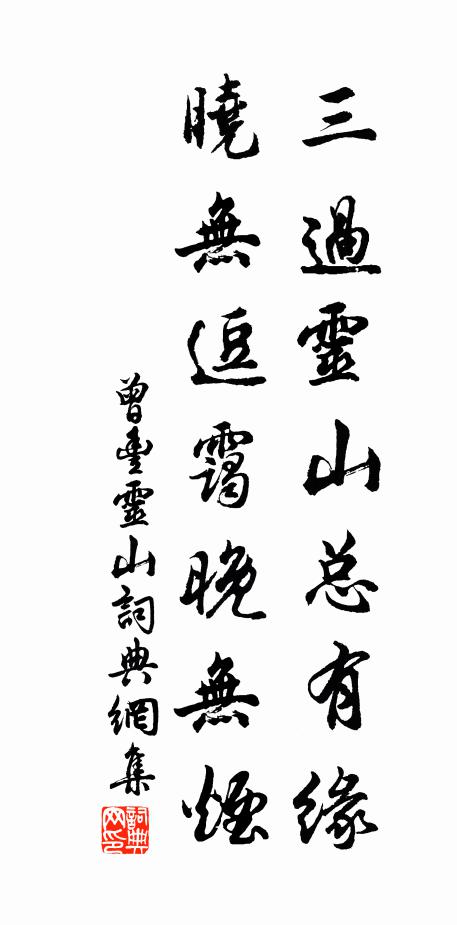 三過靈山总有緣
曉無逗靄晚無煙
曾豊靈山詞典網集
詞典网印